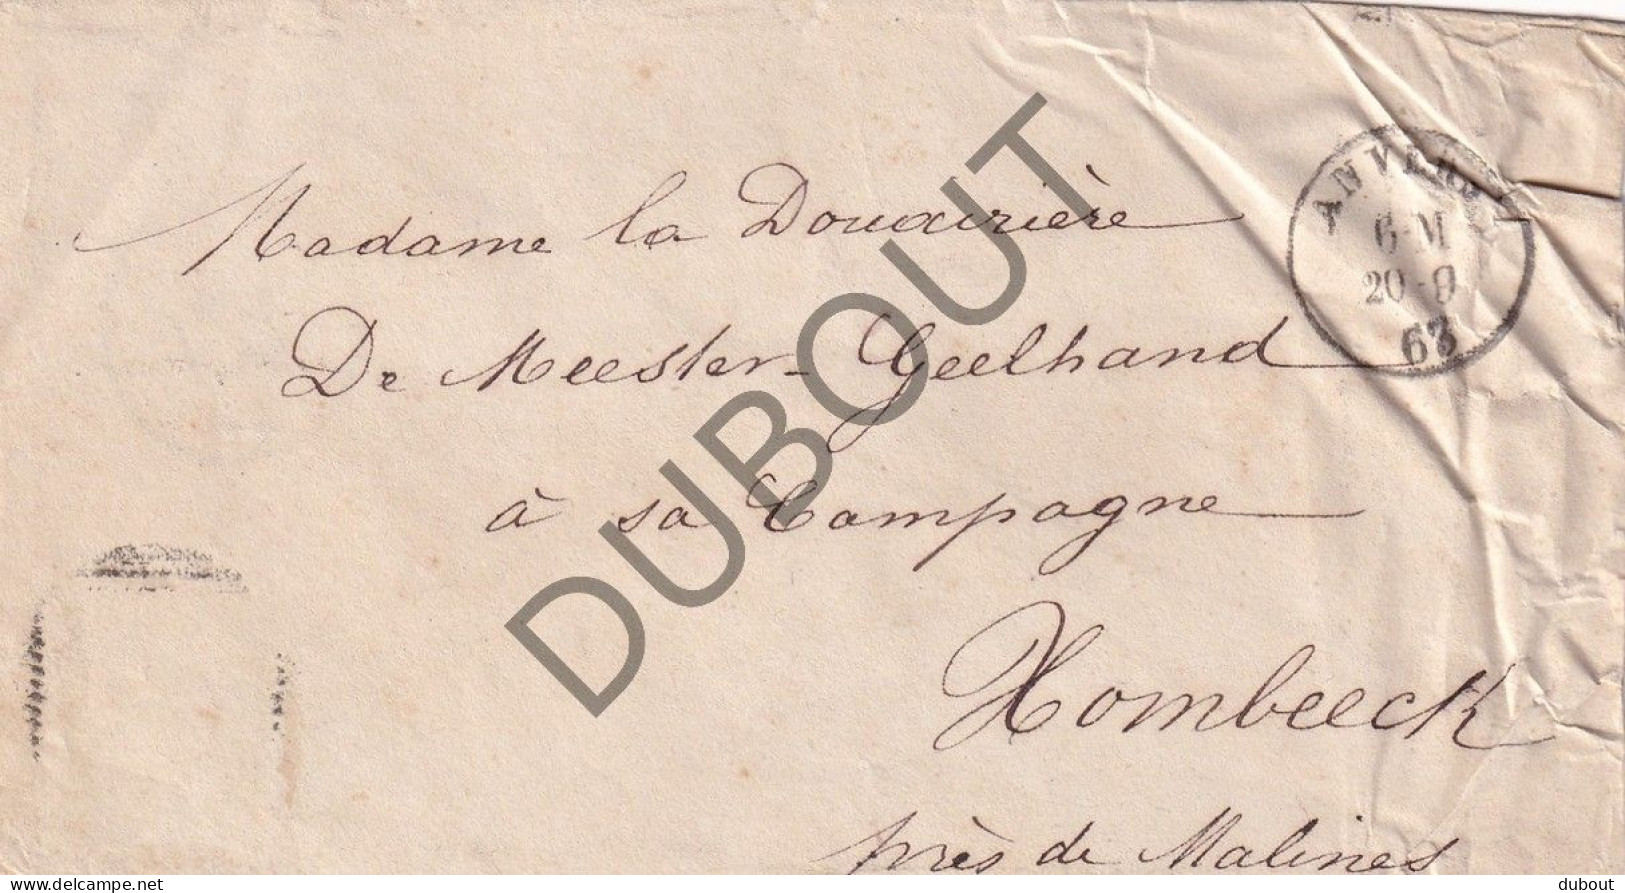 Madame la Douairière
De Meester-Geelhand
à sa Campagne
Hombeeck
près de Malines
ANVERS
6-M
20-9
63
DUBOUT
delcampe.net
dubout